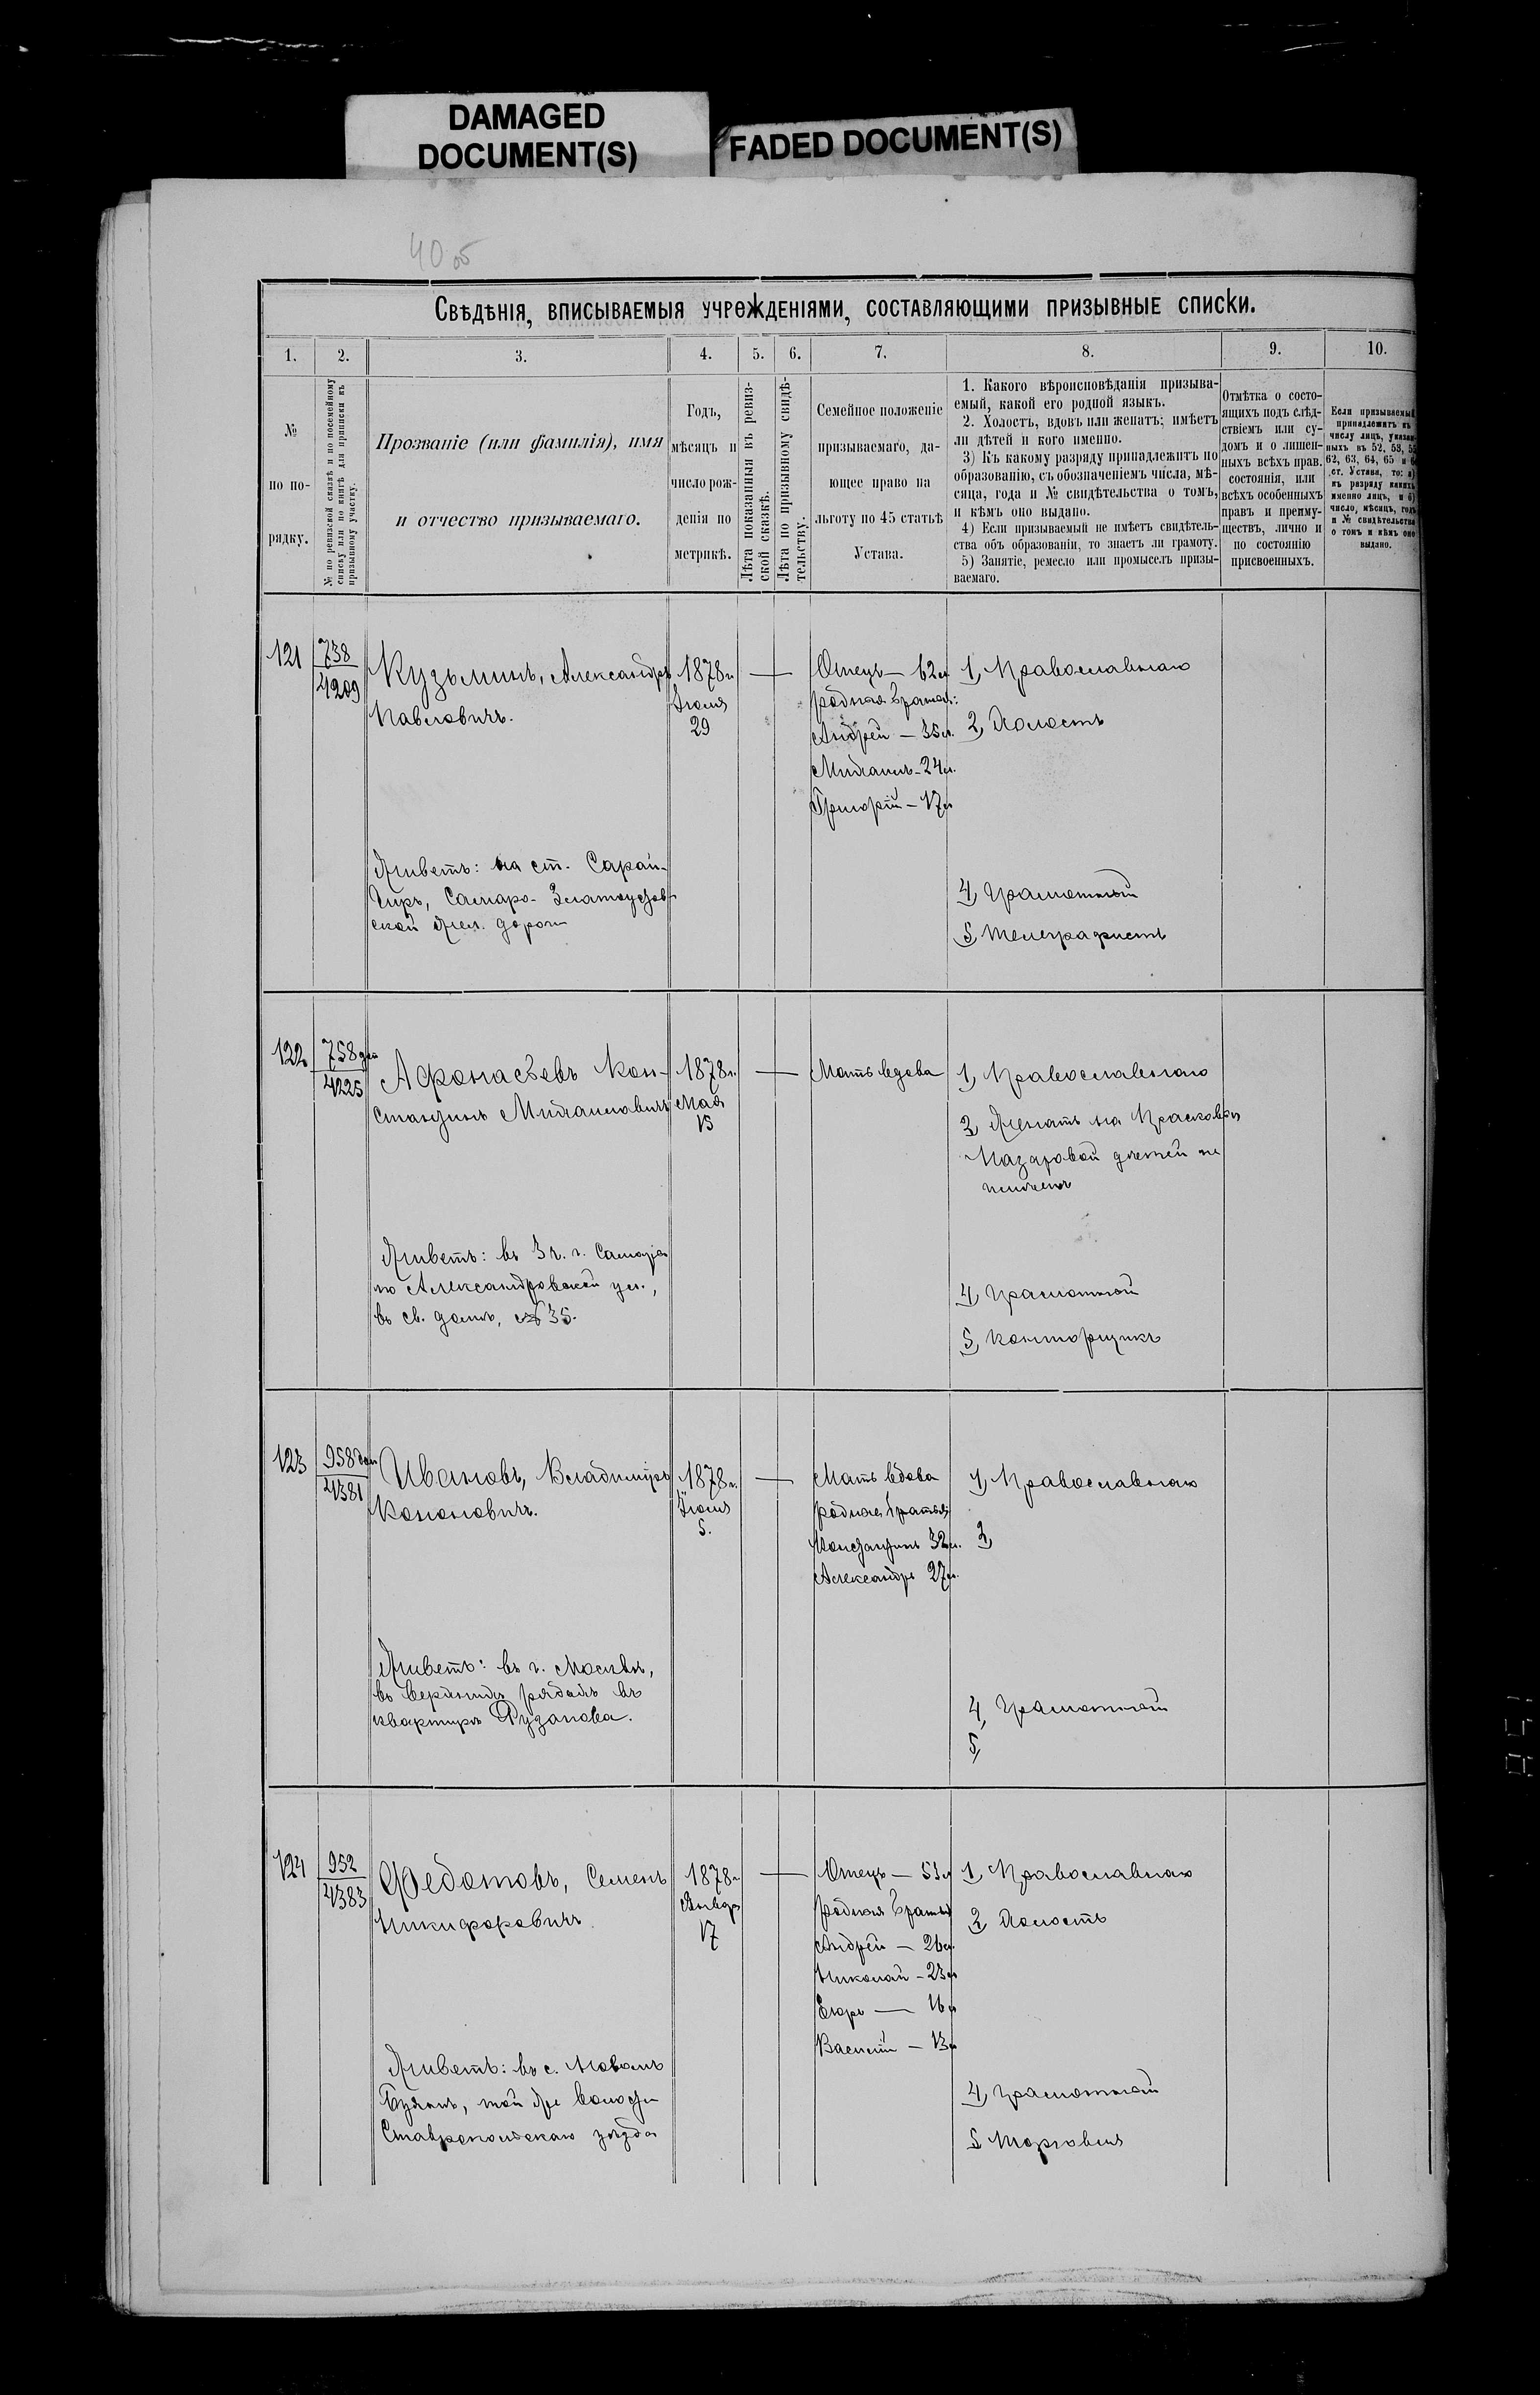 DAMAGED
DOCUMENT(S)
FADED DOCUMENT(S)
Свѣдѣнія, вписываемыя учрежденіями, составляющими призывные списки.
1.
2.
3.
4.
5.
6.
7.
8.
9.
10.
№
по по-
рядку.
№ по ревизской сказкѣ и по посемейному
списку или по книгѣ для приписки къ
призывному участку.
Прозваніе (или фамилія), имя
и отчество призываемаго.
Годъ,
мѣсяцъ и
число рож-
денія по
метрикѣ.
Лѣта показанныя въ ревиз-
ской сказкѣ.
Лѣта по призывному свидѣ-
тельству.
Семейное положеніе
призываемаго, да-
ющее право на
льготу по 45 статьѣ
Устава.
1. Какого вѣроисповѣданія призыва-
емый, какой его родной языкъ.
2. Холостъ, вдовъ или женатъ; имѣетъ
ли дѣтей и кого именно.
3) Къ какому разряду принадлежитъ по
образованію, съ обозначеніемъ числа, мѣ-
сяца, года и № свидѣтельства о томъ,
и кѣмъ оно выдано.
4) Если призываемый не имѣетъ свидѣтель-
ства объ образованіи, то знаетъ ли грамоту.
5) Занятіе, ремесло или промыселъ призы-
ваемаго.
Отмѣтка о состо-
ящихъ подъ слѣд-
ствіемъ или су-
домъ и о лишен-
ныхъ всѣхъ прав.
состоянія, или
всѣхъ особенныхъ
правъ и преиму-
ществъ, лично и
по состоянію
присвоенныхъ.
Если призываемый
принадлежитъ къ
числу лицъ, указан-
ныхъ въ 52, 53, 55
62, 63, 64, 65 и
ст. Устава, то: а)
къ разряду какихъ
именно лицъ, и б)
число, мѣсяцъ, годъ
и № свидѣтельства
о томъ и кѣмъ оно
выдано.
121
738
4209
Кузьминъ, Александръ
Павловичъ.
1878 г.
Іюля
29
Отецъ — 62 л
родная братья:
Андрей — 35 л.
Михаилъ - 24 л.
Григорій — 17 л
1, Православнаго
2, Холостъ
Живетъ: на ст. Сарай-
Гиръ, Самаро-Златоустов-
ской жел. дороги
4, Грамотный
5, Телеграфистъ
122
758
4225
Афонасьевъ Кон-
стантинъ Михаиловичъ
1878 г.
Мая
15
Мать вдова
1, Православнаго
2, Женатъ на Прасковьи
Назаровой дѣтей не
имѣетъ
Живетъ: въ 3 ч. г. Самары
по Александровской ул.,
въ св. домѣ, № 35.
4, Грамотный
5, Конторщикъ
123
958
4381
Ивановъ, Владиміръ
Кононовичъ.
1878 г.
Іюля
5.
Мать вдова
родная братья
Константинъ 32 л.
Александръ 27 л.
1, Православнаго
2,
Живетъ: въ г. Москвѣ,
въ верхнихъ рядахъ въ
квартирѣ Рузанова.
4, Грамотный
5,
124
952
4383
Федотовъ, Семенъ
Никифоровичъ
1878 г
Январ
17
Отецъ — 53 л
родная братья
Андрей — 26 л.
Николай - 23 л
Егоръ — 16 л
Василій — 13 л
1, Православнаго
2, Холостъ
Живетъ: въ с. Новомъ
Буянѣ, той же волости
Ставропольскаго уѣзда
4, Грамотный
5 Торговля